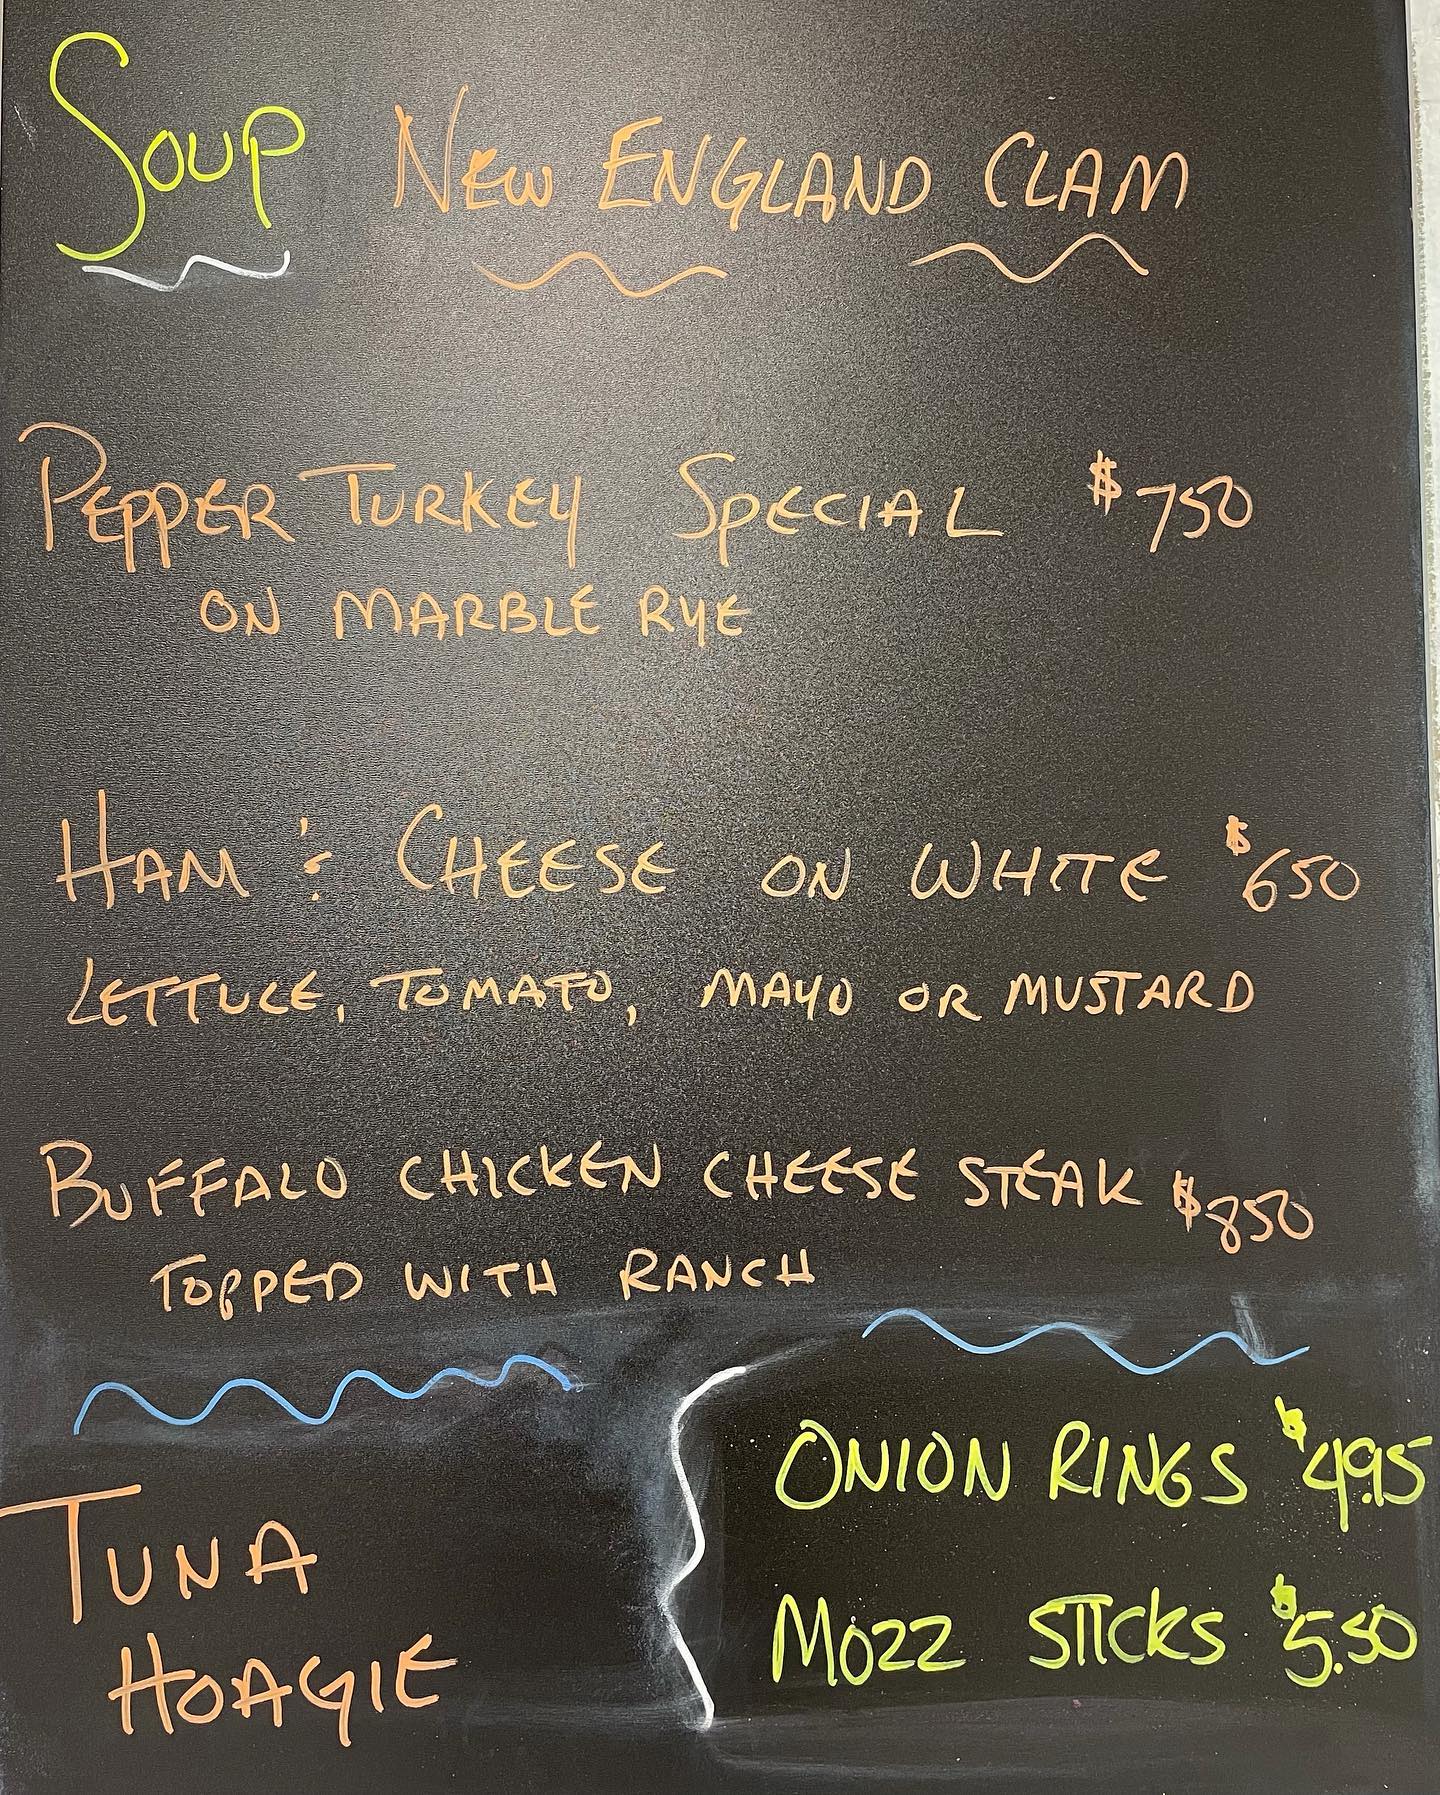 Soup New England Clam
Pepper Turkey Special $750
on Marble Rye
Ham & Cheese on White $650
Lettuce, Tomato, Mayo or Mustard
Buffalo Chicken Cheese Steak $850
Topped with Ranch
Tuna
Hoagie
Onion Rings $4.95
Mozz Sticks $5.50